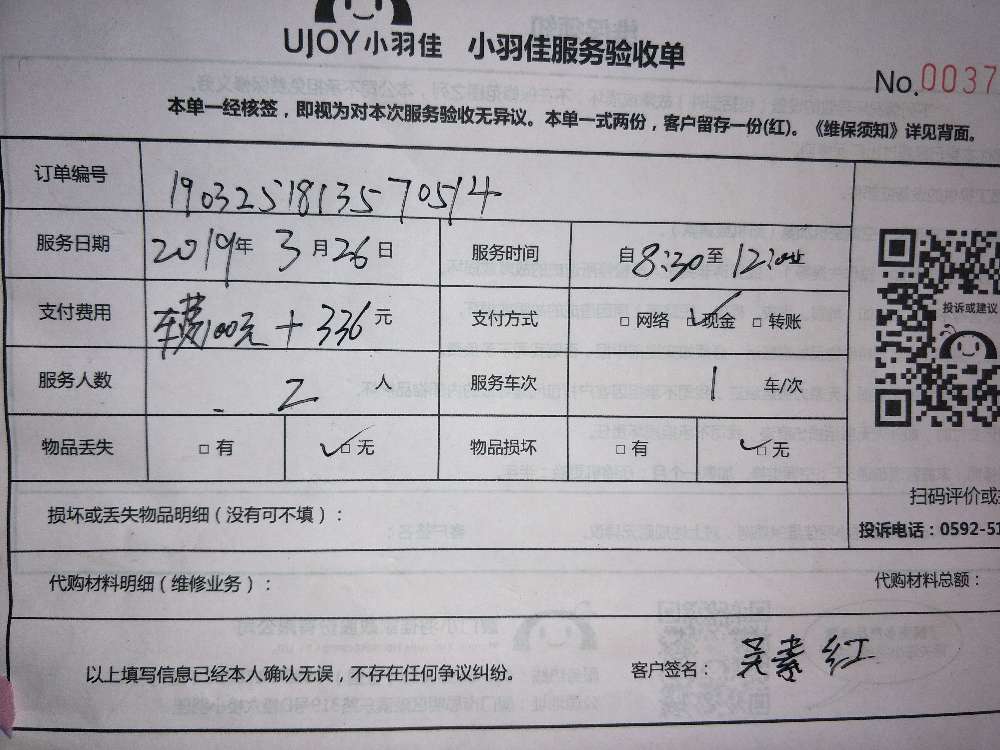 UJOY小羽佳 小羽佳服务验收单
No.0037
本单一经核签，即视为对本次服务验收无异议。本单一式两份，客户留存一份(红)。《维保须知》详见背面。
订单编号 1903251813570514
服务日期 2019年 3月26日 服务时间 自8:30至12:00止
支付费用 车费100元+336元 支付方式 □网络 □现金 □转账
服务人数 2人 服务车次 1车/次
物品丢失 □有 □无 物品损坏 □有 □无
投诉或建议
扫码评价或
损坏或丢失物品明细（没有可不填）：
投诉电话：0592-51
代购材料明细（维修业务）： 代购材料总额：
以上填写信息已经本人确认无误，不存在任何争议纠纷。 客户签名：吴素红